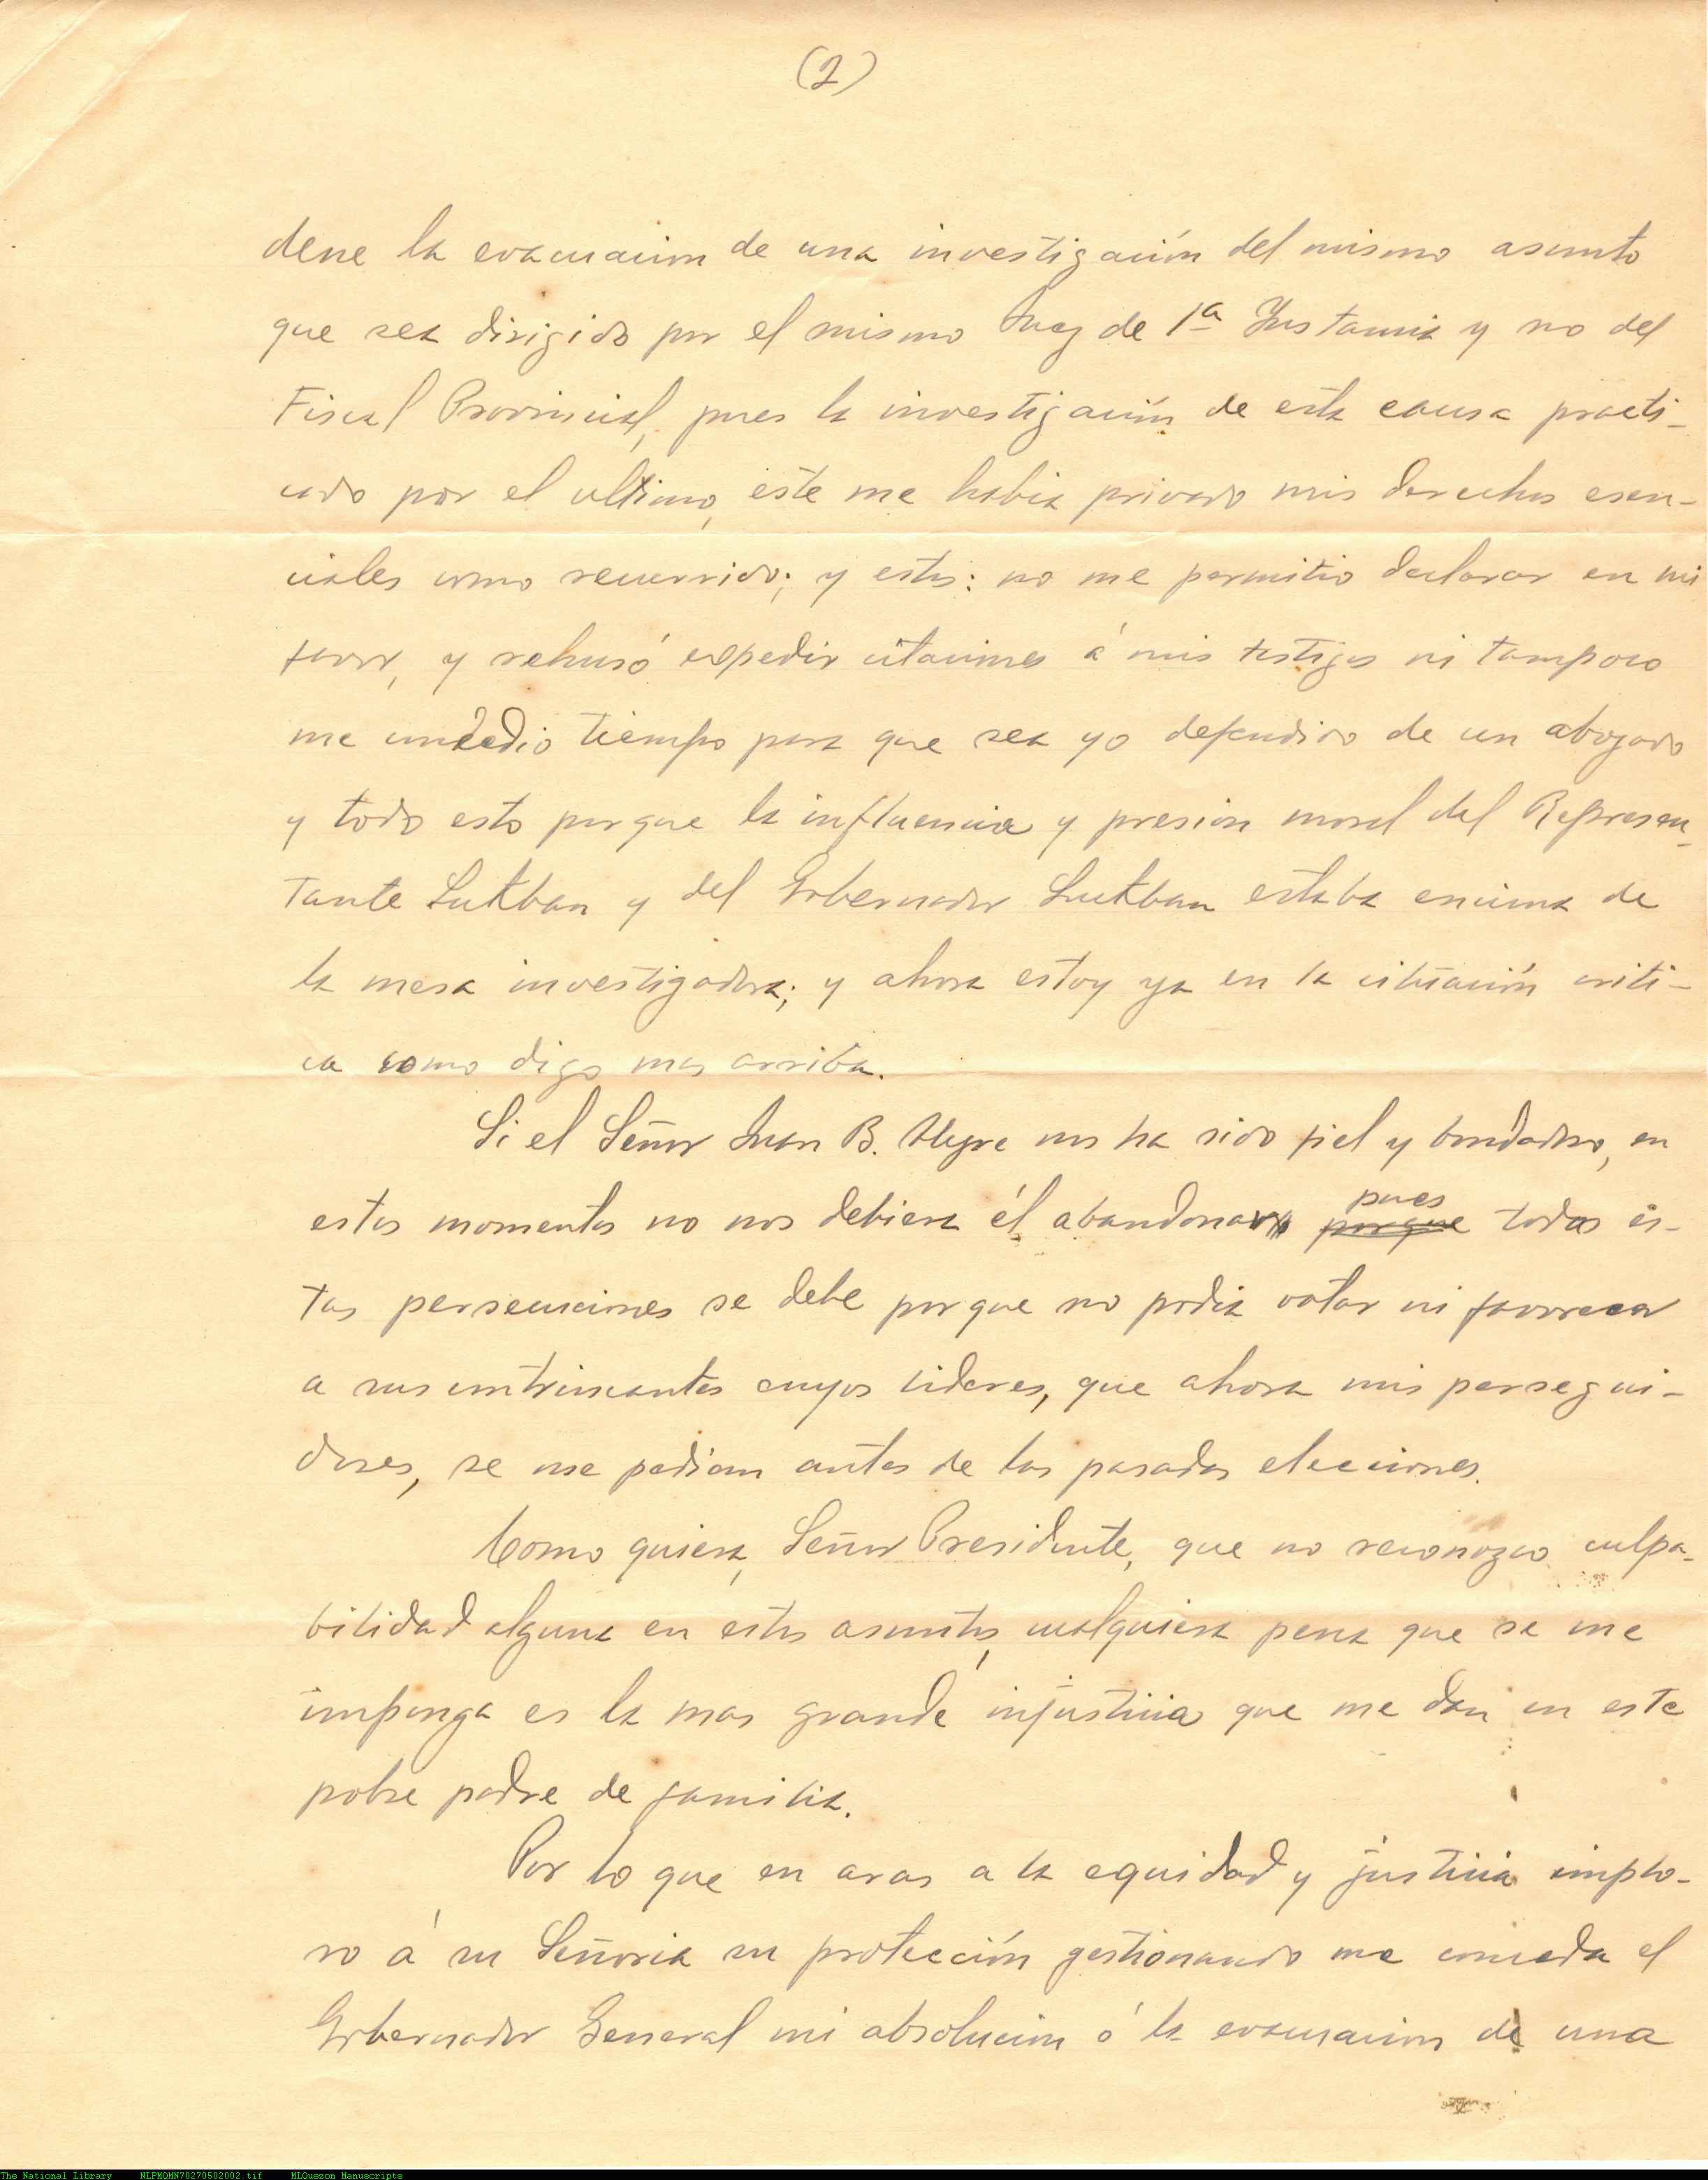 (2)
dene la evacuacion de una investigación del mismo asunto
que sea dirigido por el mismo Juez de 1ª Instancia y no del
Fiscal Provincial, pues la investigación de esta causa practi-
cado por el ultimo, este me habia privado mis derechos esen-
ciales como recurrido; y estos: no me permitio declarar en mi
favor, y rehusó expedir citaciones á mis testigos ni tampoco
me concedio tiempo para que sea yo defendido de un abogado
y todo esto porque la influencia y presion moral del Represen-
tante Lukban y del Gobernador Lukban estaba encima de
la mesa investigadora; y ahora estoy ya en la cituación criti-
ca como digo mas arriba.
Si el Señor Juan B. Alegre nos ha sido fiel y bondadoso, en
estos momentos no nos debiera él abandonar pues
porque todas es-
tas persecuciones se debe porque no podia votar ni favorecer
a sus contrincantes cuyos lideres, que ahora mis persegui-
dores, se me pedian antes de las pasadas elecciones.
Como quiera, Señor Presidente, que no reconozco culpa-
bilidad alguna en estos asuntos, cualquiera pena que se me
imponga es la mas grande injusticia que me dan en este
pobre padre de familia.
Por lo que en aras a la equidad y justicia implo-
ro á su Señoria su protección gestionando me conceda el
Gobernador General mi absolucion ó la evacuacion de una
The National Library NLPMQMN70270502002.tif MLQuezon Manuscripts